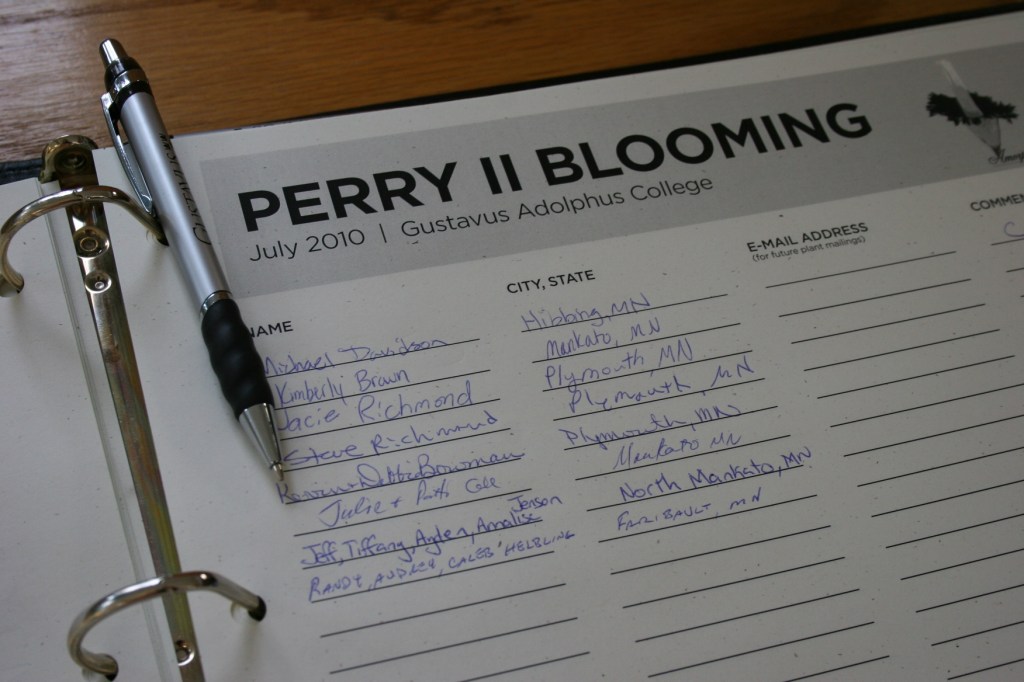 PERRY II BLOOMING
July 2010 | Gustavus Adolphus College
NAME CITY, STATE E-MAIL ADDRESS COMMEN
(for future plant mailings)
Michael Davidson Hibbing, MN
Kimberly Brown Mankato, MN
Jacie Richmond Plymouth, MN
Steve Richmond Plymouth, MN
Kevin + Debbie Bowman Plymouth, MN
Julie + Cole Mankato MN
Jeff, Tiffany, Ayden, Amalia Jenson North Mankato, MN
RANDY, AUDREY, CALEB HELBLING FARIBAULT, MN